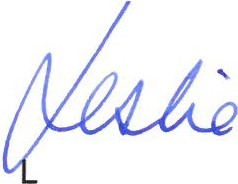 Leslie
L